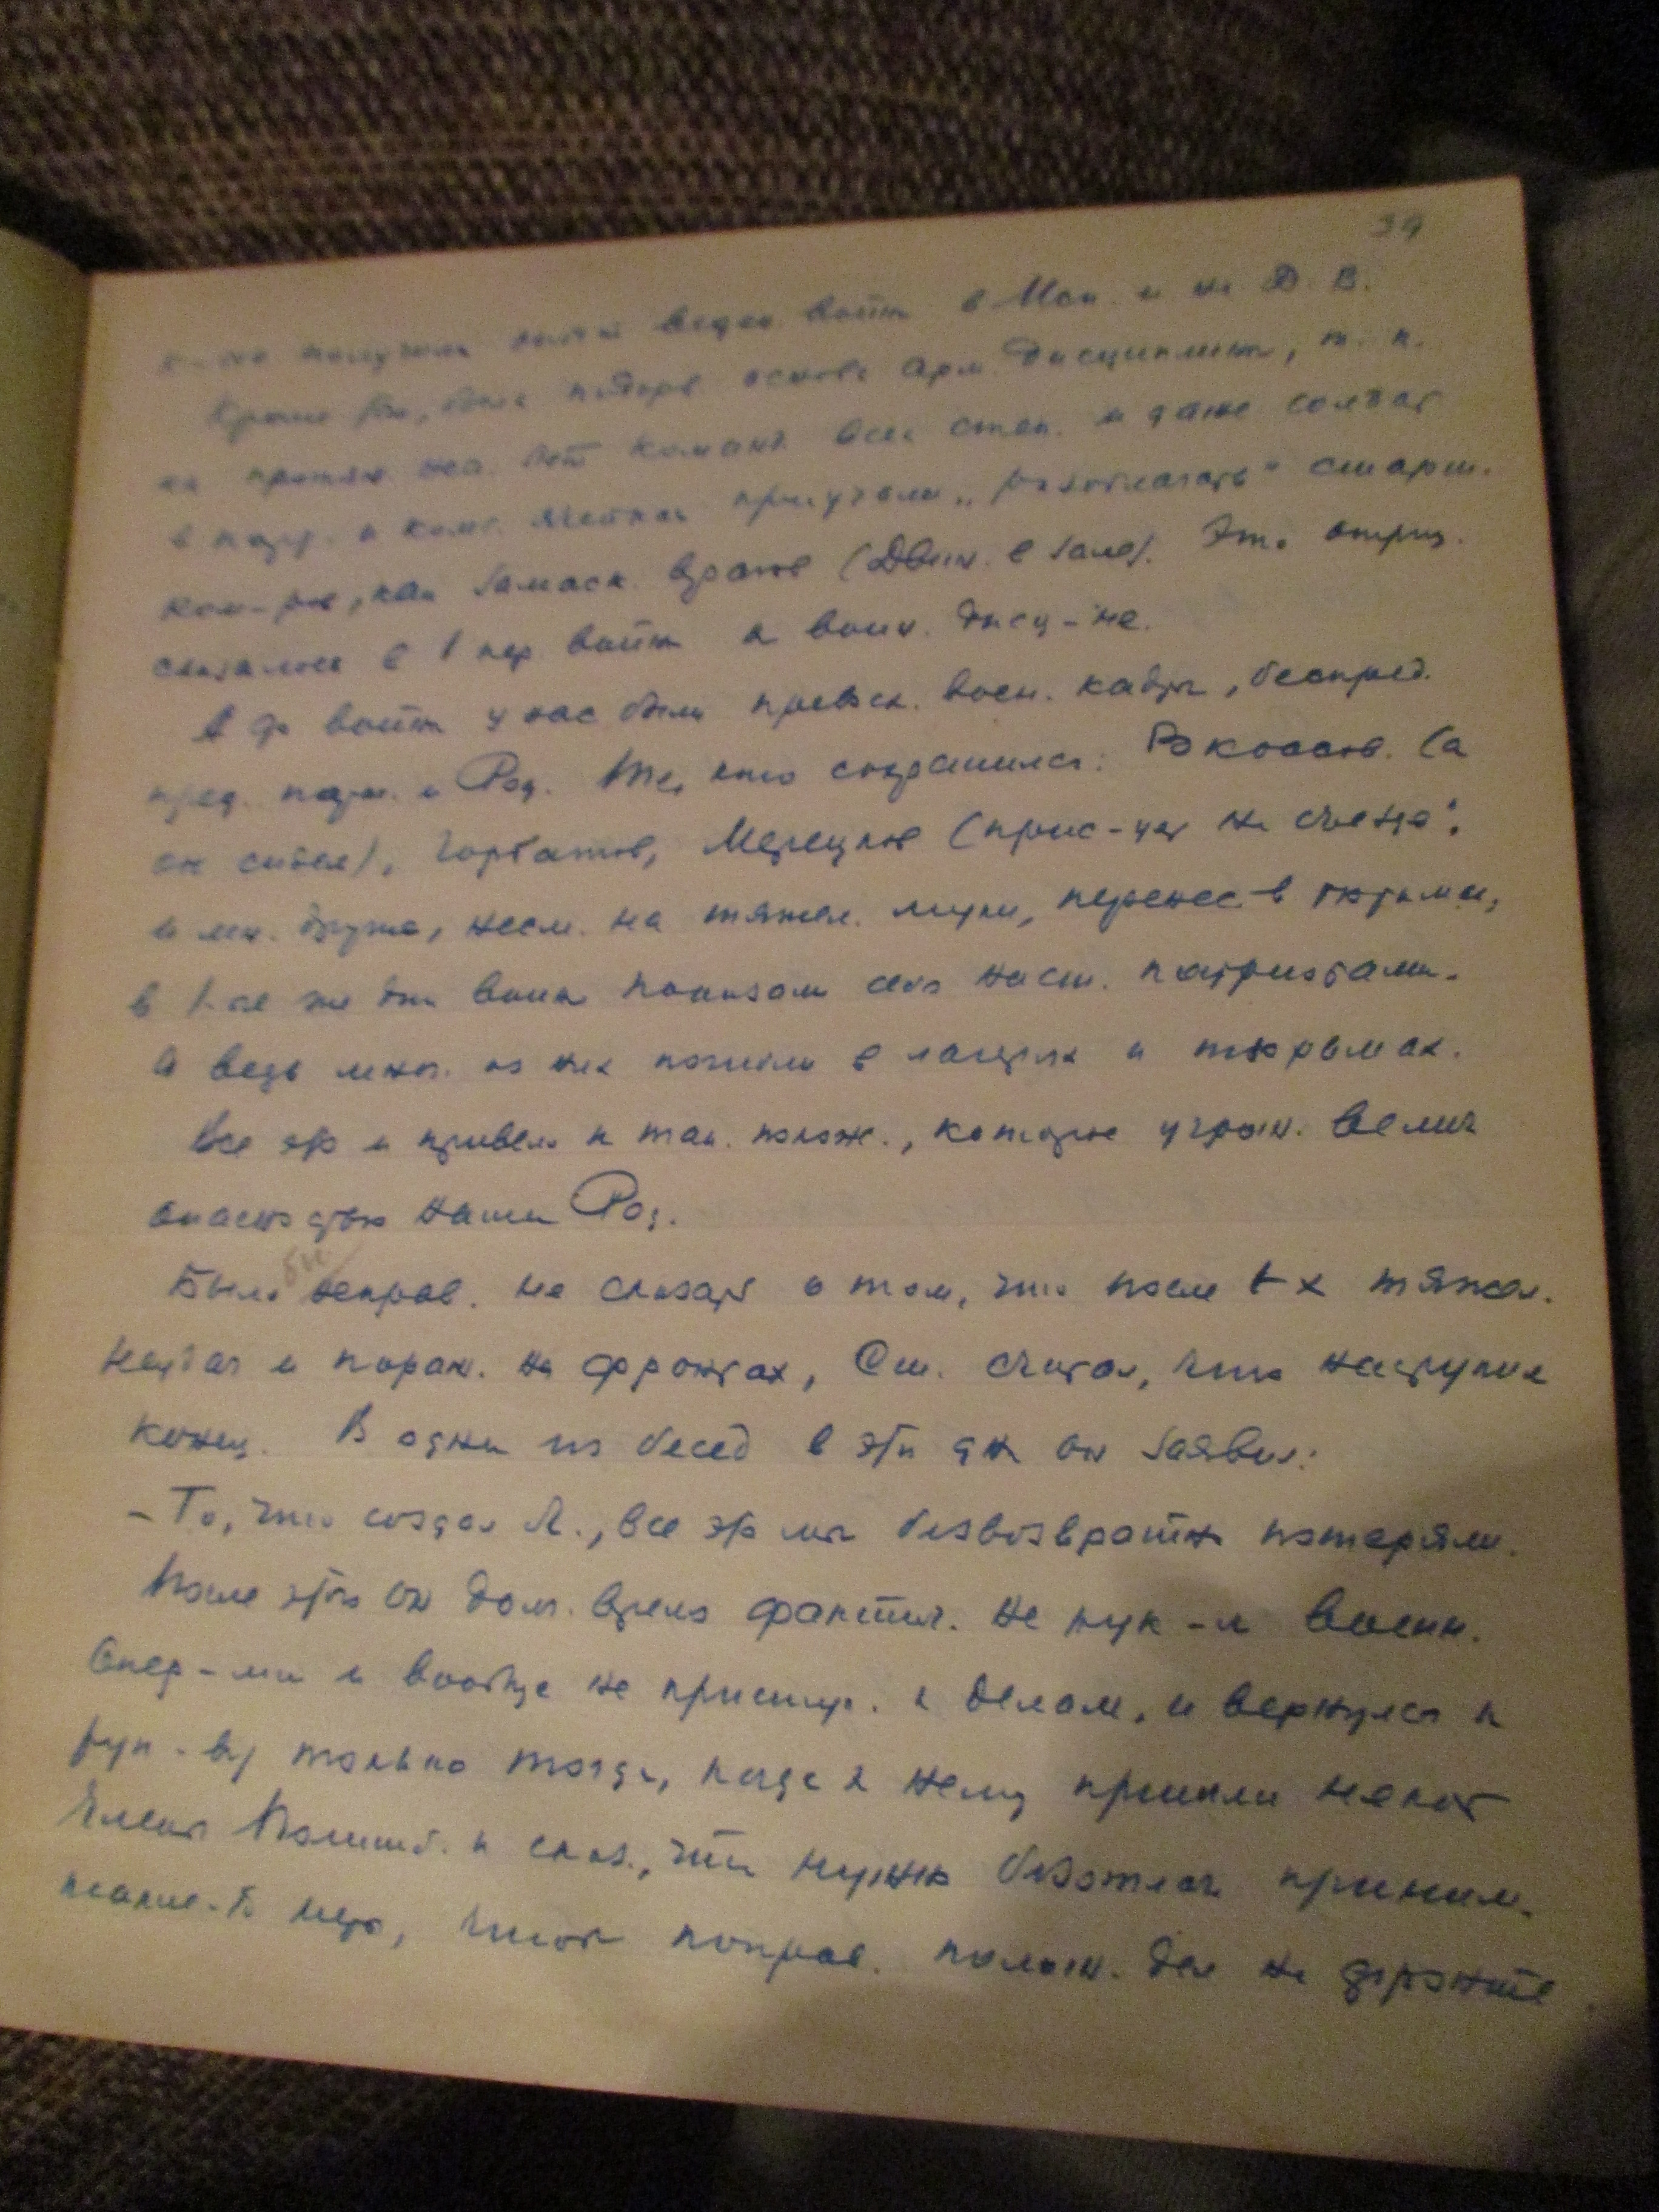 39
получили веден. войн в Исп. и на Д. В.
Кроме того, была подорв. основа арм. дисциплин, т. к.
на протяж. лет команд. всех степ. и даже солдат
в парт. и комс. ячейках приучали „разоблачать“ старш.
ком-ров, как замаск. врагов (Движ. в зале). Это отриц.
сказалось в 1 пер. войн и воин. дисц-не.
А до войн у нас были превосх. воен. кадры, беспред.
пред. парт. и Род. Те, кто сохранился: Рокоссов. (а
он сидел), Горбатов, Мерецков (прис-ует на съезде)
и мн. другие, несм. на тяжел. муки, перенес. в тюрьмах,
в 1-ые же дни войн показали себя наст. патриотами.
А ведь мног. из них погибли в лагерях и тюрьмах.
Все это и привело к так. полож., которое угрож. велич
опасностью нашей Род.
Было бы неправ. не сказать о том, что после 1-х тяжел.
неудач и пораж. на фронтах, Ст. считал, что наступил
конец. В одной из бесед в эти дни он заявил:
– То, что создал Л., все это мы безвозвратно потеряли.
После этого он долг. время фактич. не рук-л военн.
опер-ми и вообще не приступ. к делам, и вернулся к
рук-ву только тогда, когда к нему пришли некот
члены Политб. и сказ., что нужно безотлаг приним.
меры, чтобы поправ. полож. дел на фронте